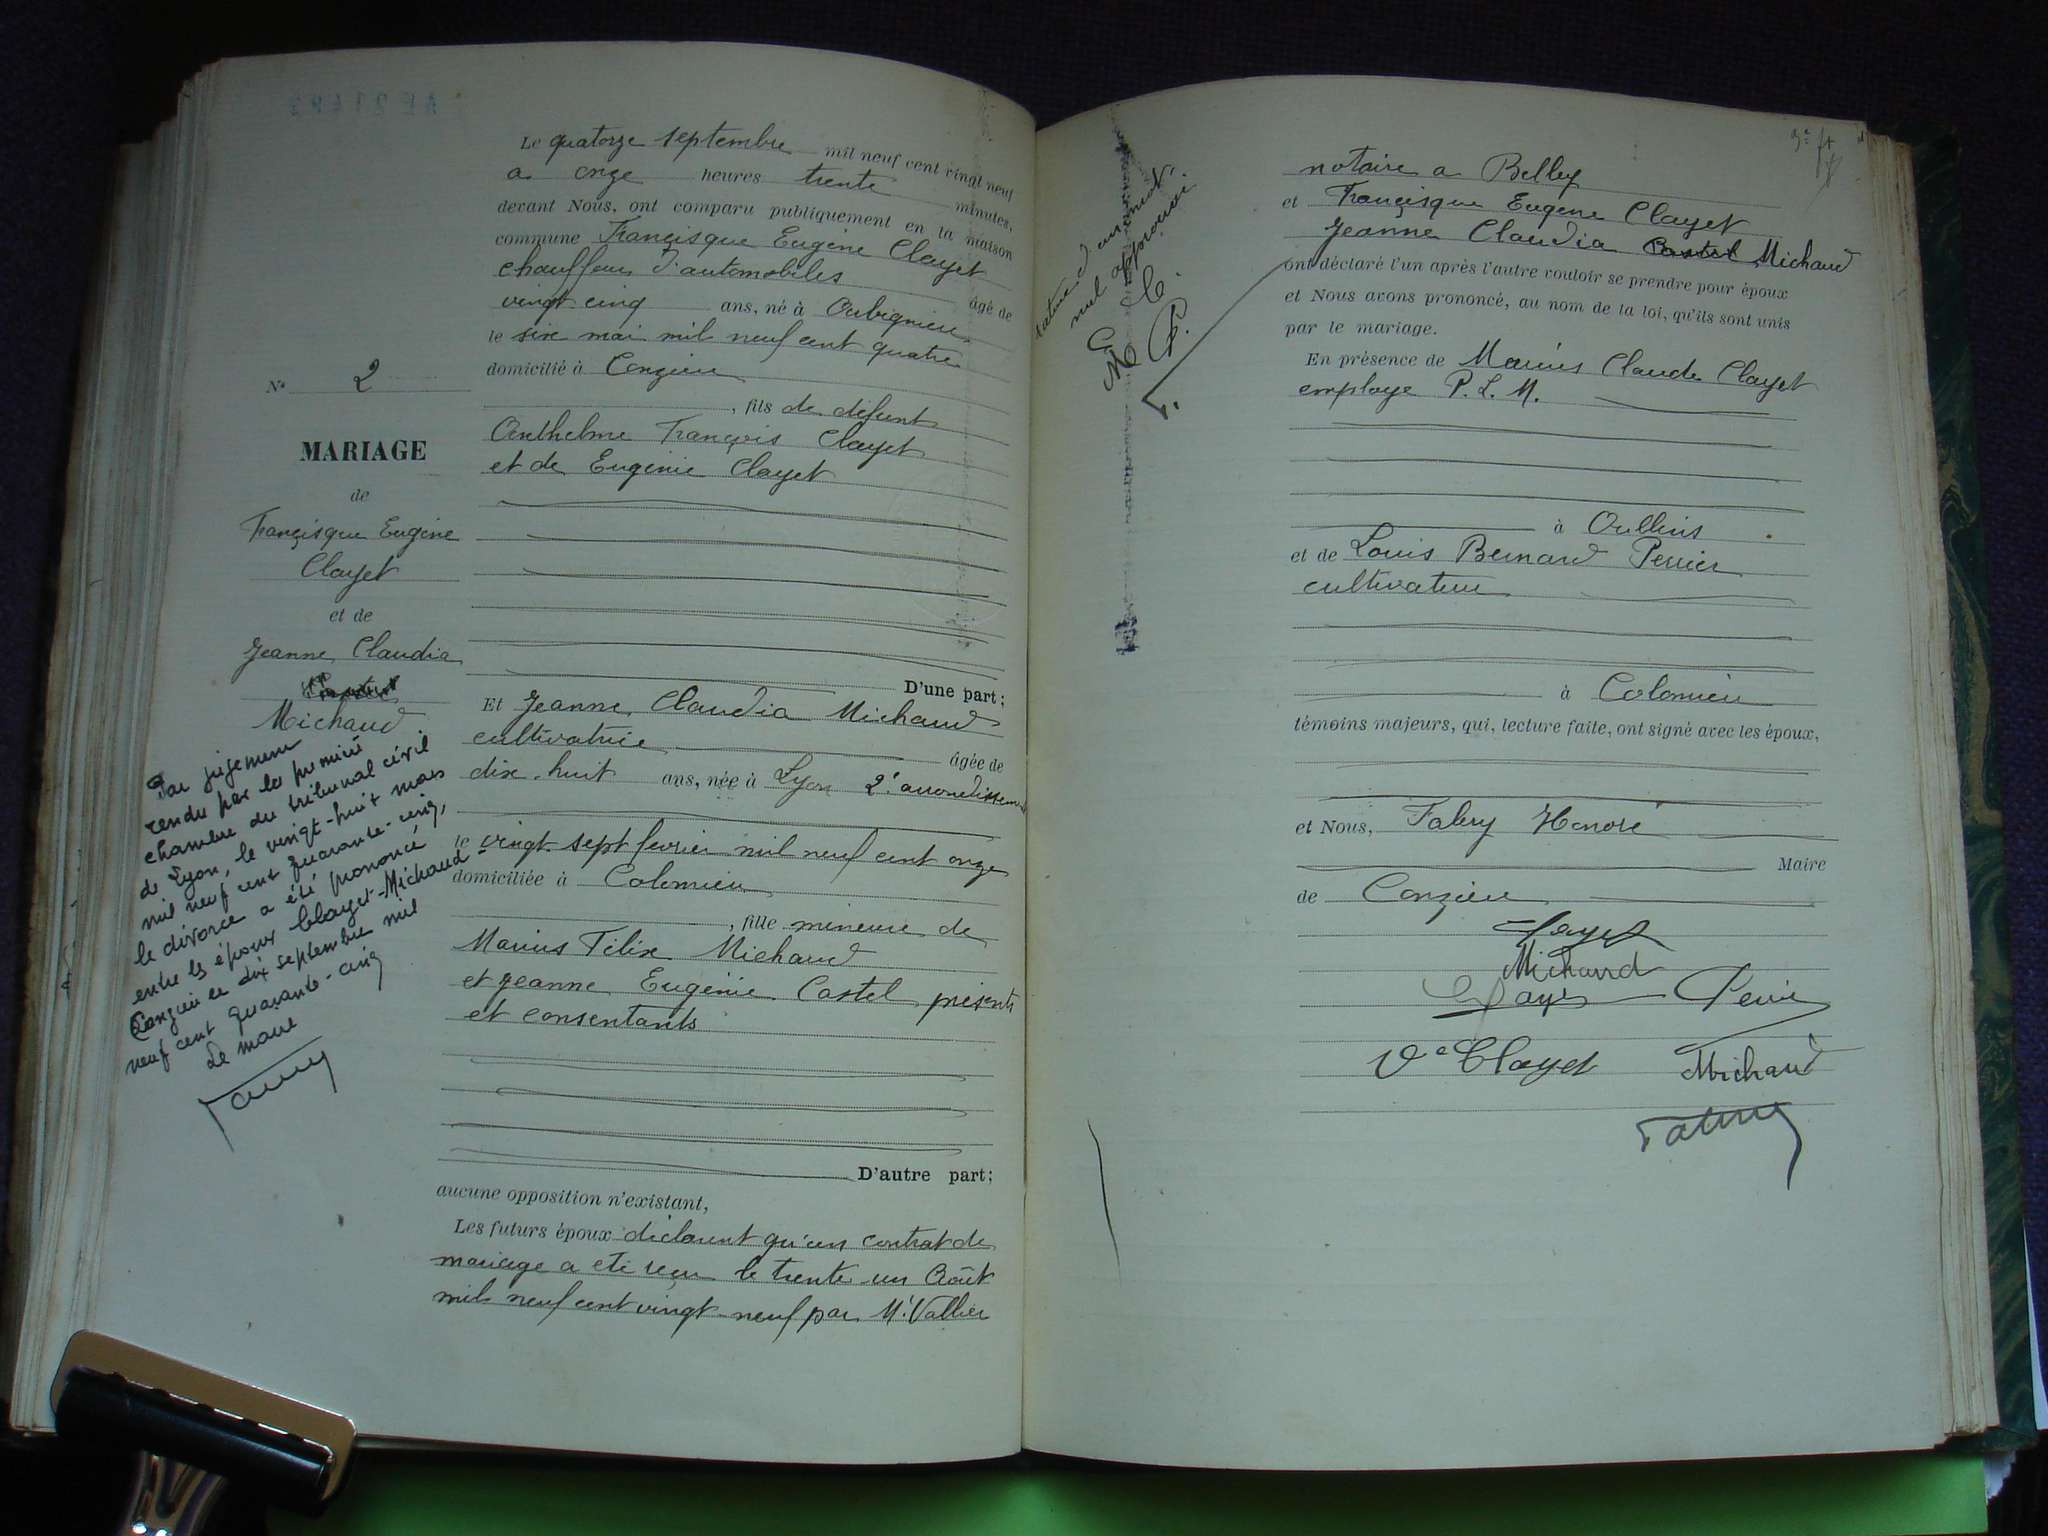 N° 2
MARIAGE
de
Françisque Eugène
Clayet
et de
Jeanne Claudia
Michaud
Par jugement
rendu par la première
chambre du tribunal civil
de Lyon, le vingt-huit mars
mil neuf cent quarante-cinq,
le divorce a été prononcé
entre les époux Clayet-Michaud-
Conzieu ce dix septembre mil
neuf cent quarante-cinq
Le maire
Fabry
Le quatorze septembre mil neuf cent vingt neuf
a onze heures trente minutes,
devant Nous, ont comparu publiquement en la maison
commune Françisque Eugène Clayet
chauffeur d'automobiles âgé de
vingt cinq ans, né à Arbignieu
le six mai mil neuf cent quatre
domicilié à Conzieu
, fils de défunt
Anthelme François Clayet
et de Eugénie Clayet
D'une part;
Et Jeanne Claudia Michaud
cultivatrice âgée de
dix-huit ans, née à Lyon 2e arrondissement
le vingt-sept fevrier mil neuf cent onze
domiciliée à Colomieu
, fille mineure de
Marius Félix Michaud
et Jeanne Eugénie Castel présents
et consentants
D'autre part;
aucune opposition n'existant,
Les futurs époux déclarent qu'un contrat de
mariage a été reçu le trente-un Août
mil neuf cent vingt-neuf par Me Vallier
rature d'un mot
nul approuvé
C. C.
M P.
F.
notaire a Belley
et Françisque Eugène Clayet
Jeanne Claudia Castel Michaud
ont déclaré l'un après l'autre vouloir se prendre pour époux
et Nous avons prononcé, au nom de la loi, qu'ils sont unis
par le mariage.
En présence de Marius Claude Clayet
employe P. L. M.
à Oullins
et de Louis Bernard Perrier
cultivateur
à Colomieu
témoins majeurs, qui, lecture faite, ont signé avec les époux,
et Nous, Fabry Honoré
Maire
de Conzieu
Clayet
Michaud
Clayet Perrier
Ve Clayet Michaud
Fabry